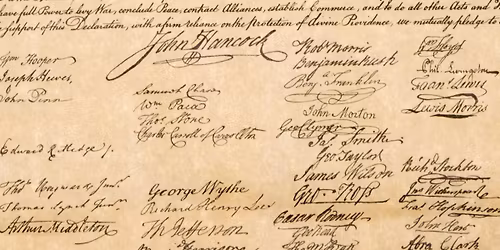 have full Power to levy War, conclude Peace, contract Alliances, establish Commerce, and to do all other Acts and
support of this Declaration, with a firm reliance on the protection of divine Providence, we mutually pledge to
John Hancock
Wm Hooper
Joseph Hewes,
John Penn
Edward Rutledge
Thos Heyward Junr.
Thomas Lynch Junr.
Arthur Middleton
Samuel Chase
Wm Paca
Thos Stone
Charles Carroll of Carrollton
George Wythe
Richard Henry Lee
Th Jefferson
Robt Morris
Benjamin Rush
Benj. Franklin
John Morton
Geo Clymer
Jas. Smith
Geo. Taylor
James Wilson
Geo. Ross
Caesar Rodney
Geo Read
Phil. Livingston
Frans. Lewis
Lewis Morris
Richd. Stockton
Jno Witherspoon
Fras. Hopkinson
John Hart
Abra Clark